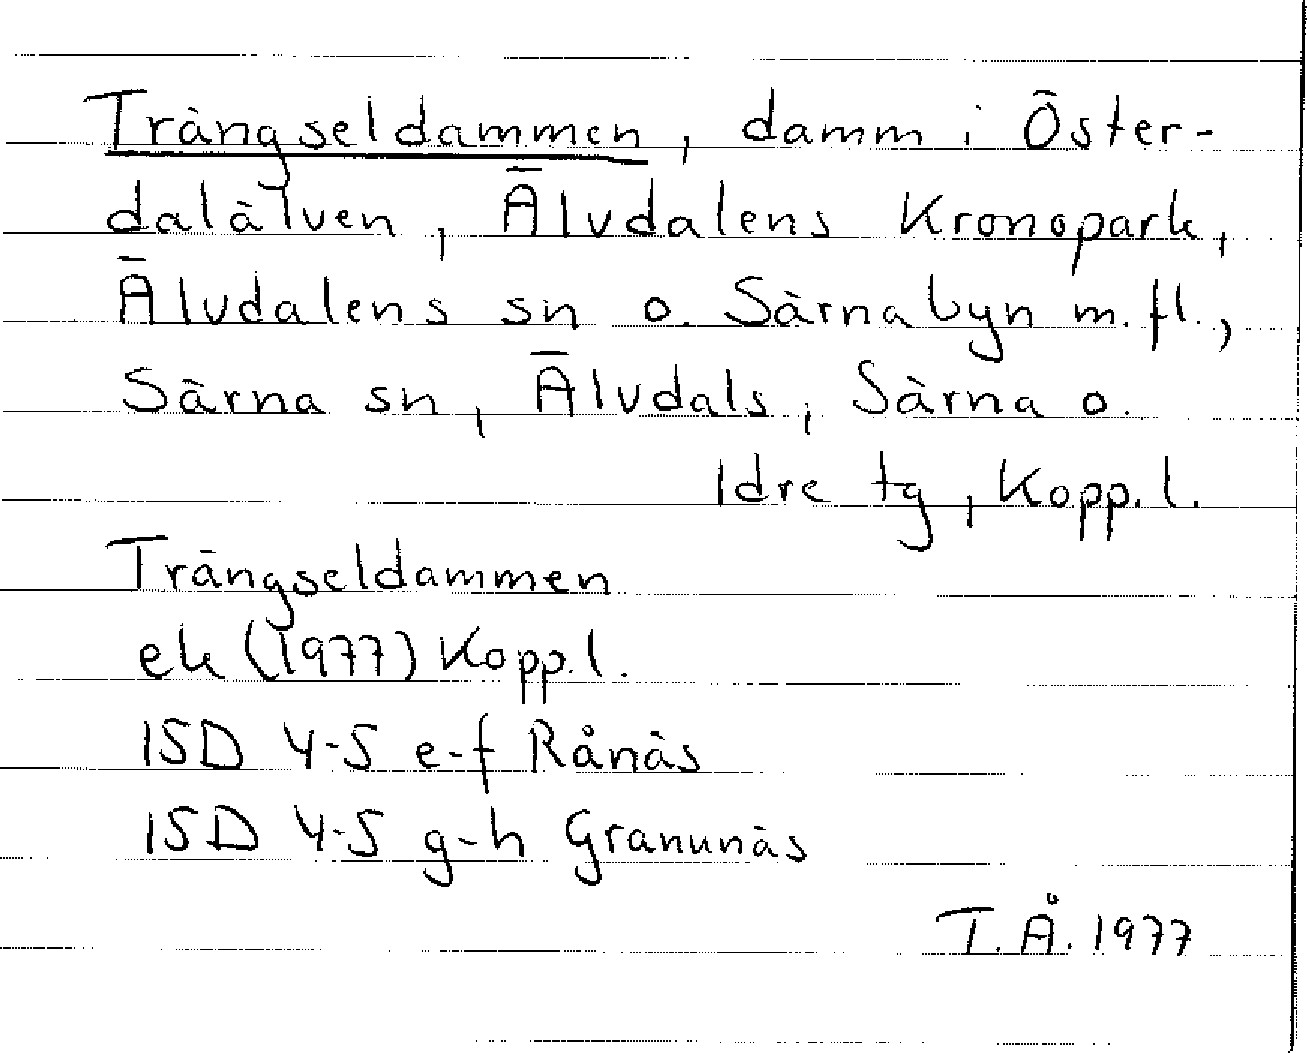 Trängseldammen, damm i Öster-
dalälven, Älvdalens Kronopark,
Älvdalens sn o. Särnabyn m.fl.,
Särna sn, Älvdals, Särna o.
Idre tg, Kopp.l.
Trängseldammen
ek (1977) Kopp.l.
15D 4-5 e-f Rånäs
15D 4-5 g-h Granunäs
T.Å. 1977